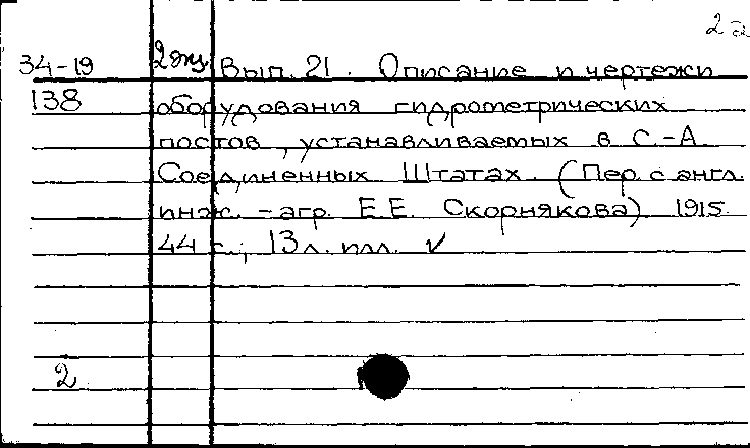 2а
34-19 2 экз. Вып. 21. Описание и чертежи
138 оборудования гидрометрических
постов, устанавливаемых в С.-А.
Соединенных Штатах. (Пер. с англ.
инж.-агр. Е.Е. Скорнякова) 1915.
44 с.; 13 л. илл. ✓
2